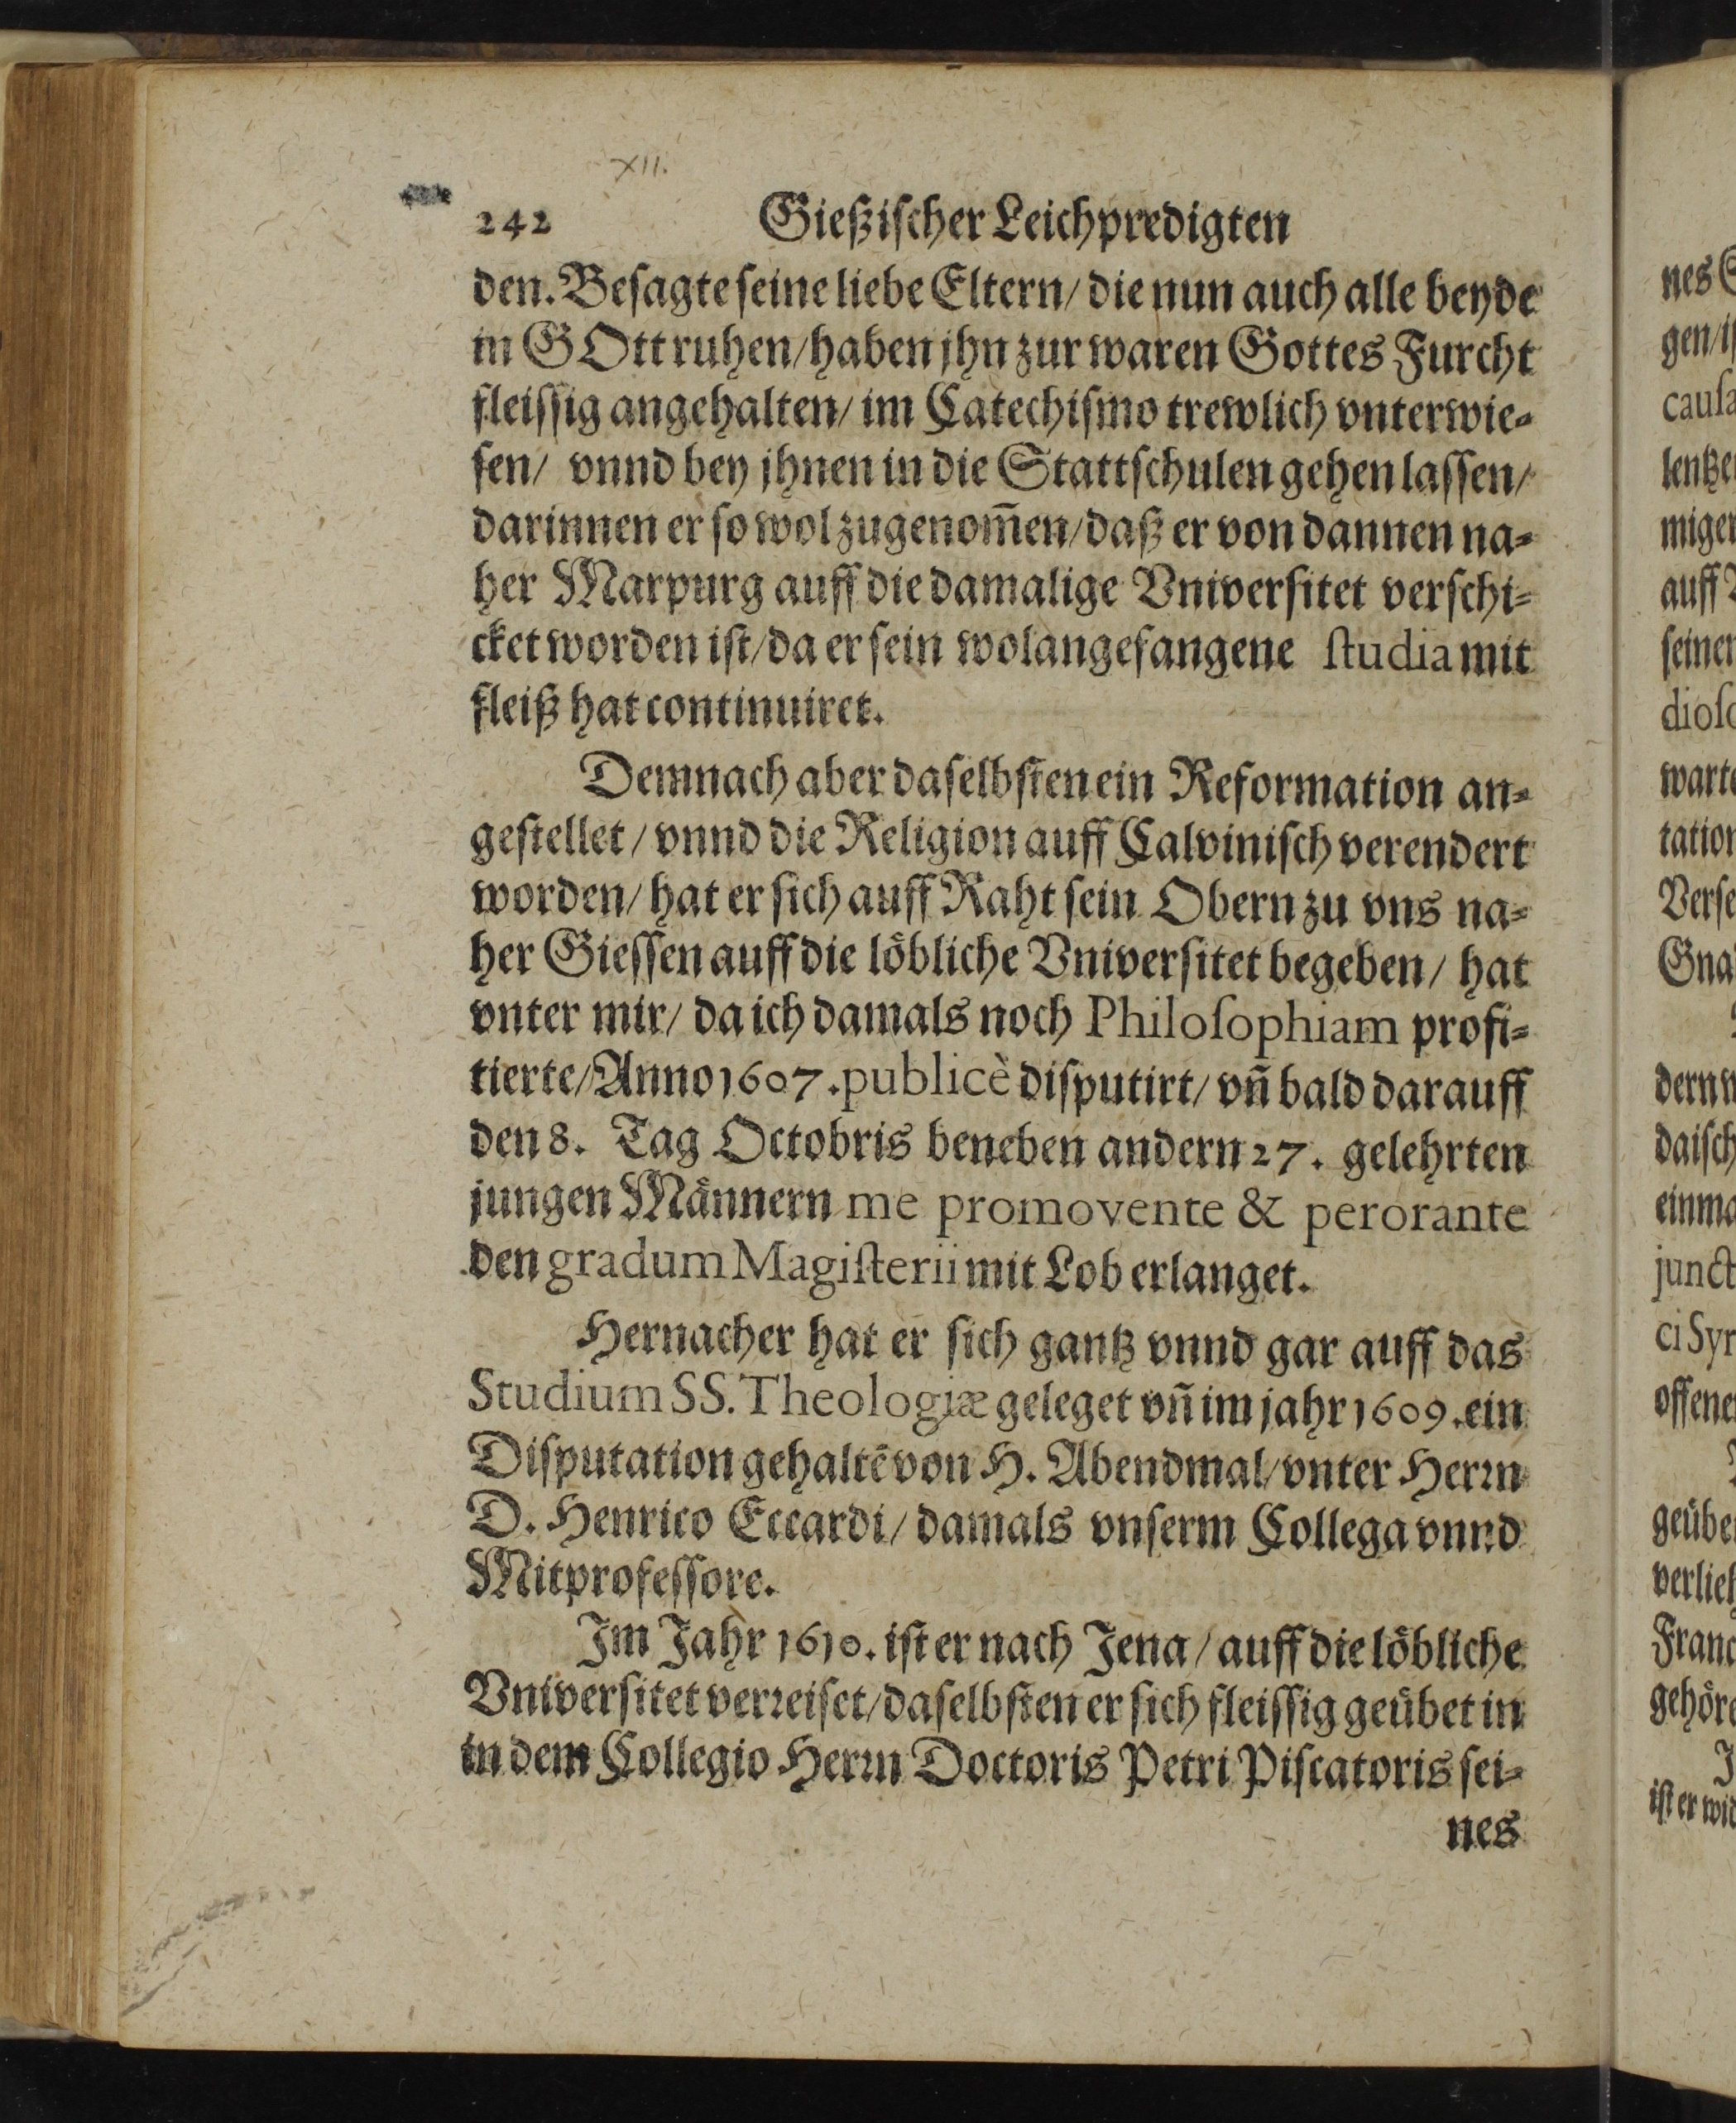 XII.
242 Gießiſcher Leichpredigten
den. Beſagte ſeine liebe Eltern/ die nun auch alle beyde
in GOtt ruhen/ haben jhn zur waren Gottes Furcht
fleiſſig angehalten/ im Catechiſmo trewlich vnterwie-
ſen/ vnnd bey jhnen in die Stattſchulen gehen laſſen/
darinnen er ſo wol zugenom̃en/ daß er von dannen na-
her Marpurg auff die damalige Vniverſitet verſchi-
cket worden iſt/ da er ſein wolangefangene ſtudia mit
fleiß hat continuiret.
Demnach aber daſelbſten ein Reformation an-
geſtellet/ vnnd die Religion auff Calviniſch verendert
worden/ hat er ſich auff Raht ſein Obern zu vns na-
her Gieſſen auff die löbliche Vniverſitet begeben/ hat
vnter mir/ da ich damals noch Philoſophiam profi-
tierte/ Anno 1607. publicè diſputirt/ vñ bald darauff
den 8. Tag Octobris beneben andern 27. gelehrten
jungen Männern me promovente & perorante
den gradum Magiſterii mit Lob erlanget.
Hernacher hat er ſich gantz vnnd gar auff das
Studium SS. Theologiæ geleget vñ im jahr 1609. ein
Diſputation gehaltē von H. Abendmal/ vnter Herꝛn
D. Henrico Eccardi/ damals vnſerm Collega vnnd
Mitprofeſſore.
Im Jahr 1610. iſt er nach Jena/ auff die löbliche
Vniverſitet verꝛeiſet/ daſelbſten er ſich fleiſſig geübet in
in dem Collegio Herꝛn Doctoris Petri Piſcatoris ſei-
nes
nes
gen/
cauſa
lentze
miger
auff
ſeiner
dioſo
warte
tation
Verſe
Gna
dern
daiſch
einma
junct
ci Syr
offene
geübe
verlieh
Franc
gehöre
iſt er wid